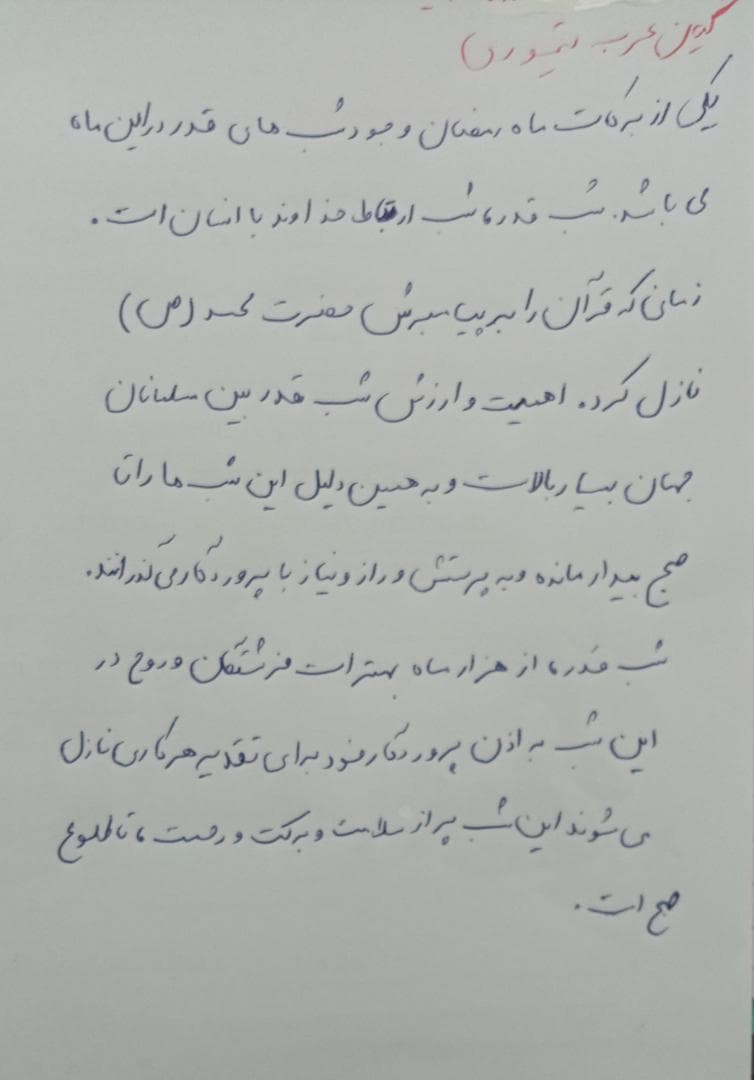 کیان عرب تیموری
یکی از برکات ماه رمضان وجود شب های قدر در این ماه
می باشد. شب قدر، شب ارتباط خداوند با انسان است.
زمانی که قرآن را بر پیامبرش حضرت محمد (ص)
نازل کرد. اهمیت و ارزش شب قدر بین مسلمانان
جهان بسیار بالاست و به همین دلیل این شب ها را تا
صبح بیدار مانده و به پرستش و راز و نیاز با پروردگار می گذرانند.
شب قدر، از هزار ماه بهتر است فرشتگان و روح در
این شب به اذن پروردگار خود برای تقدیر هر کاری نازل
می شوند این شب پر از سلامت و برکت و رحمت، تا طلوع
صبح است.